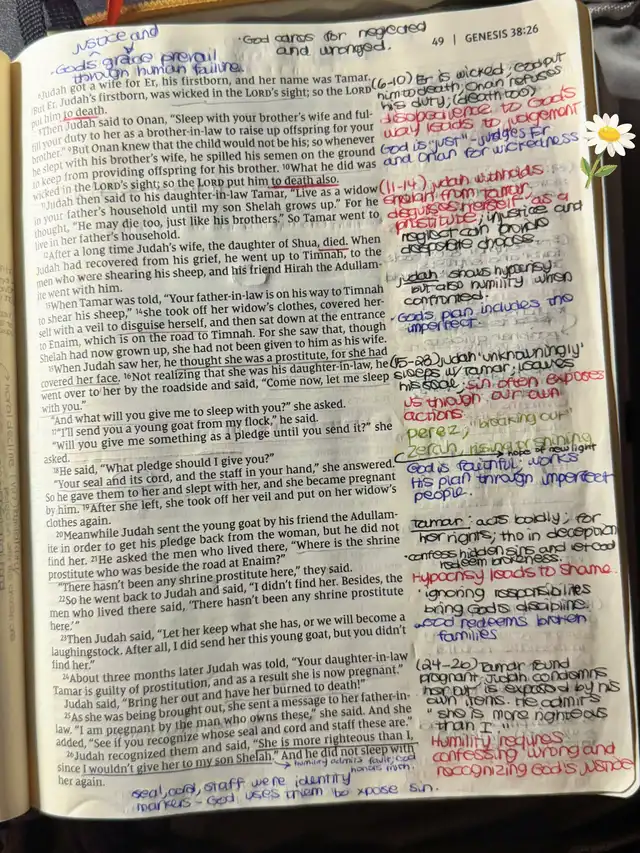 justice and
God's grace prevail
through human failure.
· God cares for neglected
and wronged.
49 | GENESIS 38:26
⁶Judah got a wife for Er, his firstborn, and her name was Tamar.
⁷But Er, Judah's firstborn, was wicked in the LORD's sight; so the LORD
put him to death.
⁸Then Judah said to Onan, "Sleep with your brother's wife and ful-
fill your duty to her as a brother-in-law to raise up offspring for your
brother." ⁹But Onan knew that the child would not be his; so whenever
he slept with his brother's wife, he spilled his semen on the ground
to keep from providing offspring for his brother. ¹⁰What he did was
wicked in the LORD's sight; so the LORD put him to death also.
¹¹Judah then said to his daughter-in-law Tamar, "Live as a widow
in your father's household until my son Shelah grows up." For he
thought, "He may die too, just like his brothers." So Tamar went to
live in her father's household.
¹²After a long time Judah's wife, the daughter of Shua, died. When
Judah had recovered from his grief, he went up to Timnah, to the
men who were shearing his sheep, and his friend Hirah the Adullam-
ite went with him.
¹³When Tamar was told, "Your father-in-law is on his way to Timnah
to shear his sheep," ¹⁴she took off her widow's clothes, covered her-
self with a veil to disguise herself, and then sat down at the entrance
to Enaim, which is on the road to Timnah. For she saw that, though
Shelah had now grown up, she had not been given to him as his wife.
¹⁵When Judah saw her, he thought she was a prostitute, for she had
covered her face. ¹⁶Not realizing that she was his daughter-in-law, he
went over to her by the roadside and said, "Come now, let me sleep
with you."
"And what will you give me to sleep with you?" she asked.
¹⁷"I'll send you a young goat from my flock," he said.
"Will you give me something as a pledge until you send it?" she
asked.
¹⁸He said, "What pledge should I give you?"
"Your seal and its cord, and the staff in your hand," she answered.
So he gave them to her and slept with her, and she became pregnant
by him. ¹⁹After she left, she took off her veil and put on her widow's
clothes again.
²⁰Meanwhile Judah sent the young goat by his friend the Adullam-
ite in order to get his pledge back from the woman, but he did not
find her. ²¹He asked the men who lived there, "Where is the shrine
prostitute who was beside the road at Enaim?"
"There hasn't been any shrine prostitute here," they said.
²²So he went back to Judah and said, "I didn't find her. Besides, the
men who lived there said, 'There hasn't been any shrine prostitute
here.'"
²³Then Judah said, "Let her keep what she has, or we will become a
laughingstock. After all, I did send her this young goat, but you didn't
find her."
²⁴About three months later Judah was told, "Your daughter-in-law
Tamar is guilty of prostitution, and as a result she is now pregnant."
Judah said, "Bring her out and have her burned to death!"
²⁵As she was being brought out, she sent a message to her father-in-
law. "I am pregnant by the man who owns these," she said. And she
added, "See if you recognize whose seal and cord and staff these are."
²⁶Judah recognized them and said, "She is more righteous than I,
since I wouldn't give her to my son Shelah." And he did not sleep with
her again.
humility admits fault; God
honors truth.
seal, cord, staff were identity
markers - God uses them to xpose sin.
(6-10) Er is wicked; God put
him to death, Onan refuses
his duty; (death too)
disobedience to God's
way leads to judgement
God is "just" - judges Er
and Onan for wickedness
(11-14) Judah withholds
Shelah from Tamar,
disguises herself as a
prostitute; injustice and
neglect can provoke
desperate choices.
Judah shows hypocrisy
but also humility when
confronted.
· God's plan includes the
imperfect.
(15-23) Judah 'unknowingly'
sleeps w/ Tamar; leaves
his seal; sin often exposes
us through our own
actions.
perez, "breaking out"
zerah, rising or shining
hope of new light
God is faithful, works
His plan through imperfect
people.
Tamar: acts boldly; for
her rights; tho in deception
· confess hidden sins and let God
redeem brokeness.
Hypocrisy leads to shame.
· ignoring responsibilies
bring God's discipline.
· God redeems broken
families
(24-26) Tamar found
pregnant; Judah condemns
her but is exposed by his
own items. He admits
"she is more righteous
than I"
Humility requires
confessing wrong and
recognizing God's justice